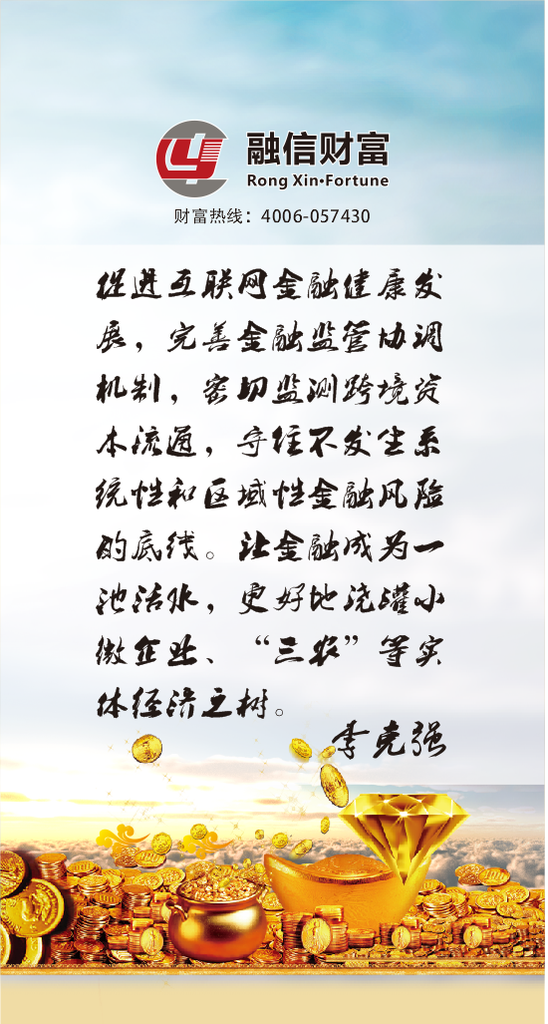 融信财富
Rong Xin•Fortune
财富热线：4006-057430
促进互联网金融健康发
展，完善金融监管协调
机制，密切监测跨境资
本流通，守住不发生系
统性和区域性金融风险
的底线。让金融成为一
池活水，更好地浇灌小
微企业、“三农”等实
体经济之树。
李克强